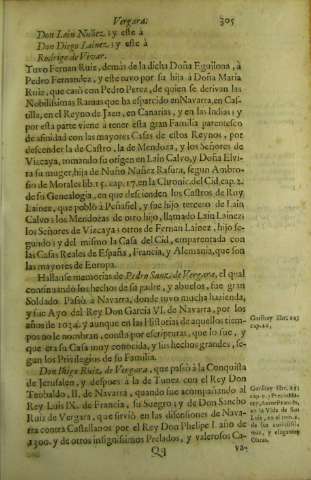 Vergara. 305
Don Lain Nuñez. ; y este à
Don Diego Lainez. ; y este à
Rodrigo de Vivar.
Tuvo Fernan Ruiz, demàs de la dicha Doña Egailona, à
Pedro Fernandez, y este tuvo por su hija à Doña Maria
Ruiz, que casò con Pedro Perez, de quien se derivan las
Nobilissimas Ramas que ha esparcido en Navarra, en Cas-
tilla, en el Reyno de Jaen, en Canarias, y en las Indias; y
por esta parte viene à tener esta gran Familia parentesco
de afinidad con las mayores Casas de estos Reynos, por
descender la de Castro, la de Mendoza, y los Señores de
Vizcaya, tomando su origen en Lain Calvo, y Doña Elvi-
ra su muger, hija de Nuño Nuñez Rasura, segun Ambro-
sio de Morales lib. 15. cap. 17. en la Chronic. del Cid, cap. 2.
de su Genealogia, en que descienden los Castros de Ruy
Lainez, que poblò à Peñafiel, y fue hijo tercero de Lain
Calvo; los Mendozas de otro hijo, llamado Lain Lainez;
los Señores de Vizcaya; otros de Fernan Lainez, hijo se-
gundo; y del mismo la Casa del Cid, emparentada con
las Casas Reales de España, Francia, y Alemania, que son
las mayores de Europa.
Hallanse memorias de Pedro Sanz de Vergara, el qual
continuando los hechos de su padre, y abuelos, fue gran
Soldado. Passò à Navarra, donde tuvo mucha hazienda,
y fue Ayo del Rey Don Garcia VI. de Navarra, por los
años de 1034. y aunque en las Historias de aquellos tiem-
pos no le nombran, consta por escrituras, que lo fue, y
que era su Casa muy conocida, y sus hechos grandes, se-
gun los Privilegios de su Familia.
Don Iñigo Ruiz, de Vergara, que passò à la Conquista
de Jerusalen, y despues à la de Tunez con el Rey Don
Teobaldo, II. de Navarra, quando fue acompañando al
Rey Luis IX. de Francia, su Suegro; y de Don Sancho
Ruiz de Vergara, que sirviò en las disensiones de Nava-
rra contra Castellanos por el Rey Don Phelipe I. año de
1300. y de otros insignissimos Prelados, y valerosos Ca-
Qq va-
cap.
en la Vida de San
Luis, en el tom. 2.
de sus
y elegantes
Obras.